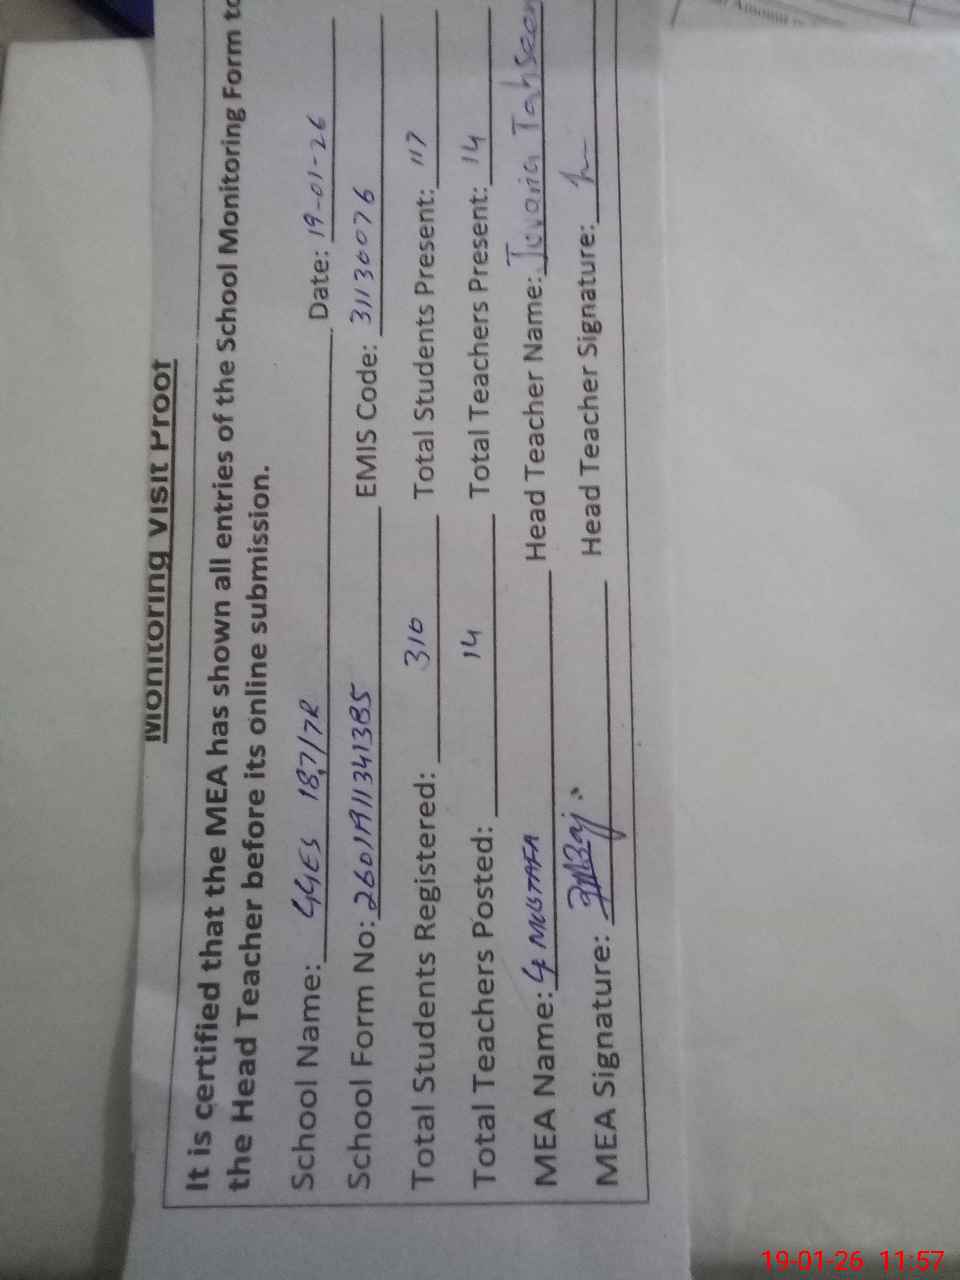 Monitoring Visit Proof
It is certified that the MEA has shown all entries of the School Monitoring Form to
the Head Teacher before its online submission.
School Name: GGES 187/7R Date: 19-01-26
School Form No: 2601A11341385 EMIS Code: 31130076
Total Students Registered: 310 Total Students Present: 117
Total Teachers Posted: 14 Total Teachers Present: 14
MEA Name: G MUSTAFA Head Teacher Name: Juvaria Tahseen
MEA Signature: Head Teacher Signature:
Amount
19-01-26 11:57